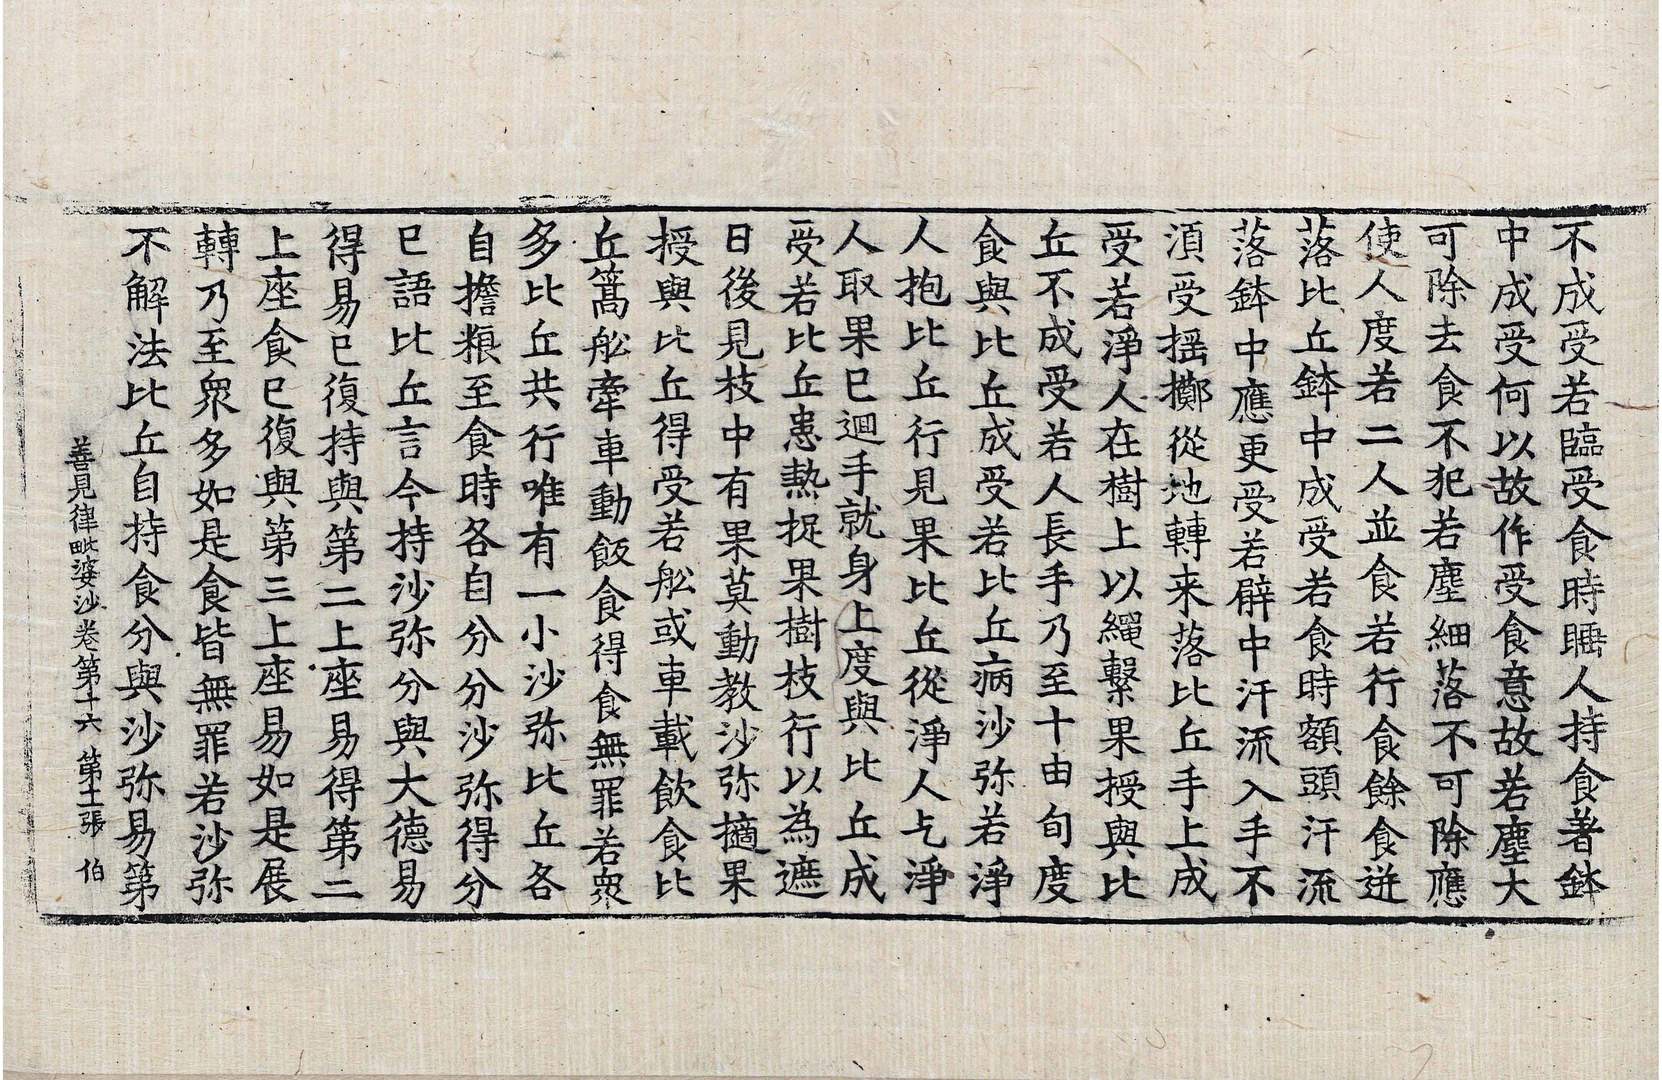 不成受若臨受食時睡人持食著鉢
中成受何以故作受食意故若塵大
可除去食不犯若塵細落不可除應
使人度若二人並食若行食餘食迸
落比丘鉢中成受若食時額頭汗流
落鉢中應更受若臂中汗流入手不
湏受揺擲從地轉来落比丘手上成
受若淨人在樹上以繩繫果授與比
丘不成受若人長手乃至十由旬度
食與比丘成受若比丘病沙弥若淨
人抱比丘行見果比丘從淨人乞淨
人取果已迴手就身上度與比丘成
受若比丘患熱捉果樹枝行以為遮
日後見枝中有果莫動教沙弥擿果
授與比丘得受若舩或車載飲食比
丘篙舩牽車動飯食得食無罪若衆
多比丘共行唯有一小沙弥比丘各
自擔粮至食時各自分分沙弥得分
已語比丘言今持沙弥分與大德易
得易已復持與第二上座易得第二
上座食已復與第三上座易如是展
轉乃至衆多如是食皆無罪若沙弥
不解法比丘自持食分與沙弥易第
善見律毗婆沙卷第十六 第十二張 伯